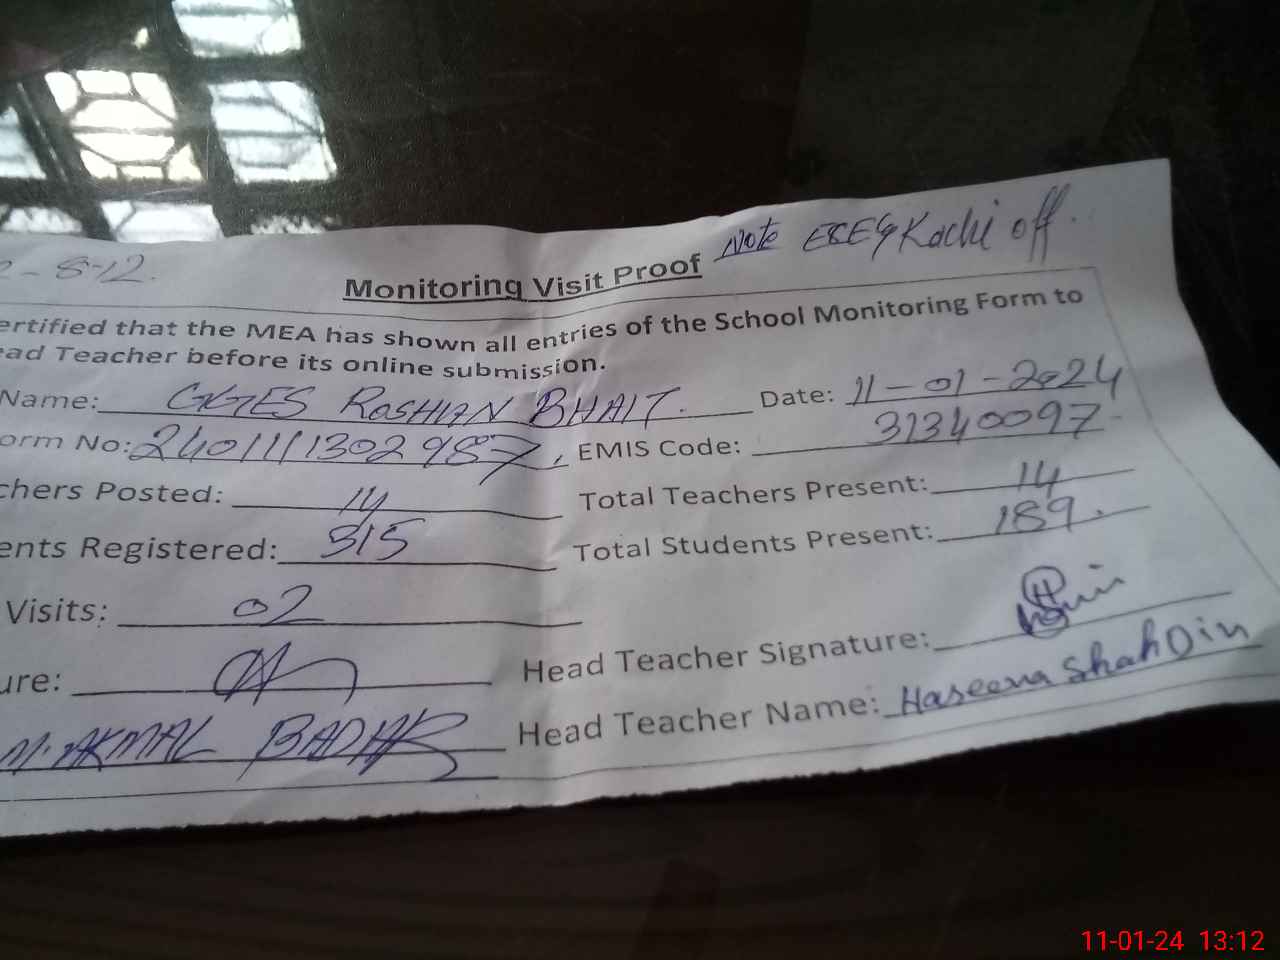 Note ECE & Kachi off.
2-8-12.
Monitoring Visit Proof
ertified that the MEA has shown all entries of the School Monitoring Form to
ead Teacher before its online submission.
Name: GGES ROSHAN BHAIT. Date: 11-01-2024
orm No: 2401111302987, EMIS Code: 31340097-
chers Posted: 14 Total Teachers Present: 14
ents Registered: 315 Total Students Present: 189.
Visits: 02
ure: Head Teacher Signature:
M. AKMAL BADAR Head Teacher Name: Haseena Shah Din
11-01-24 13:12